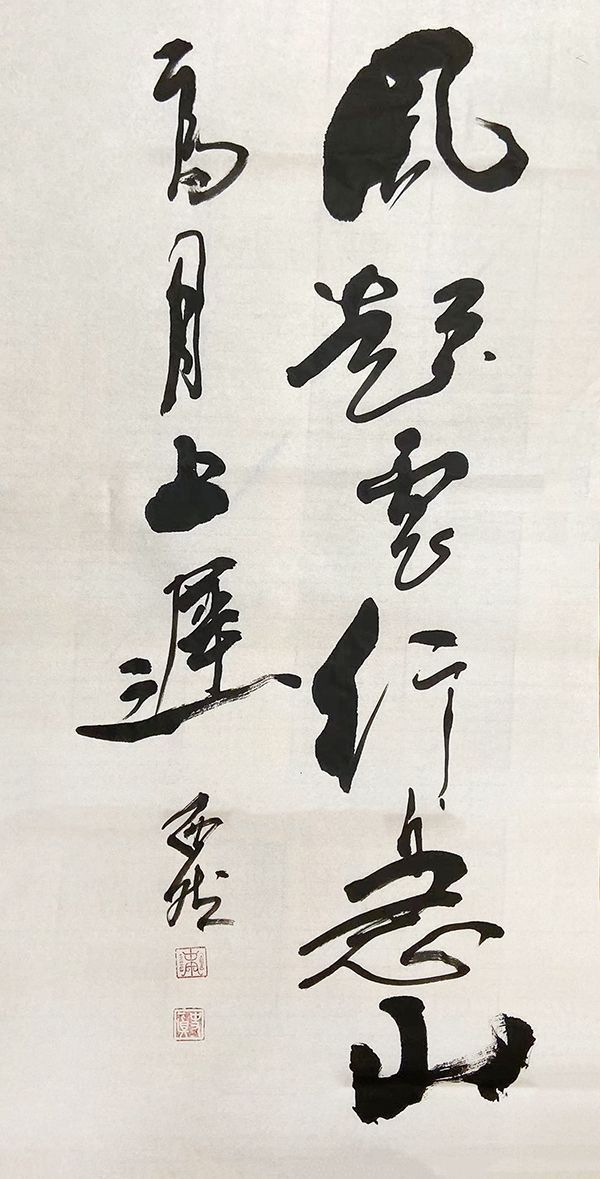 風起雲行急山
高月上遲